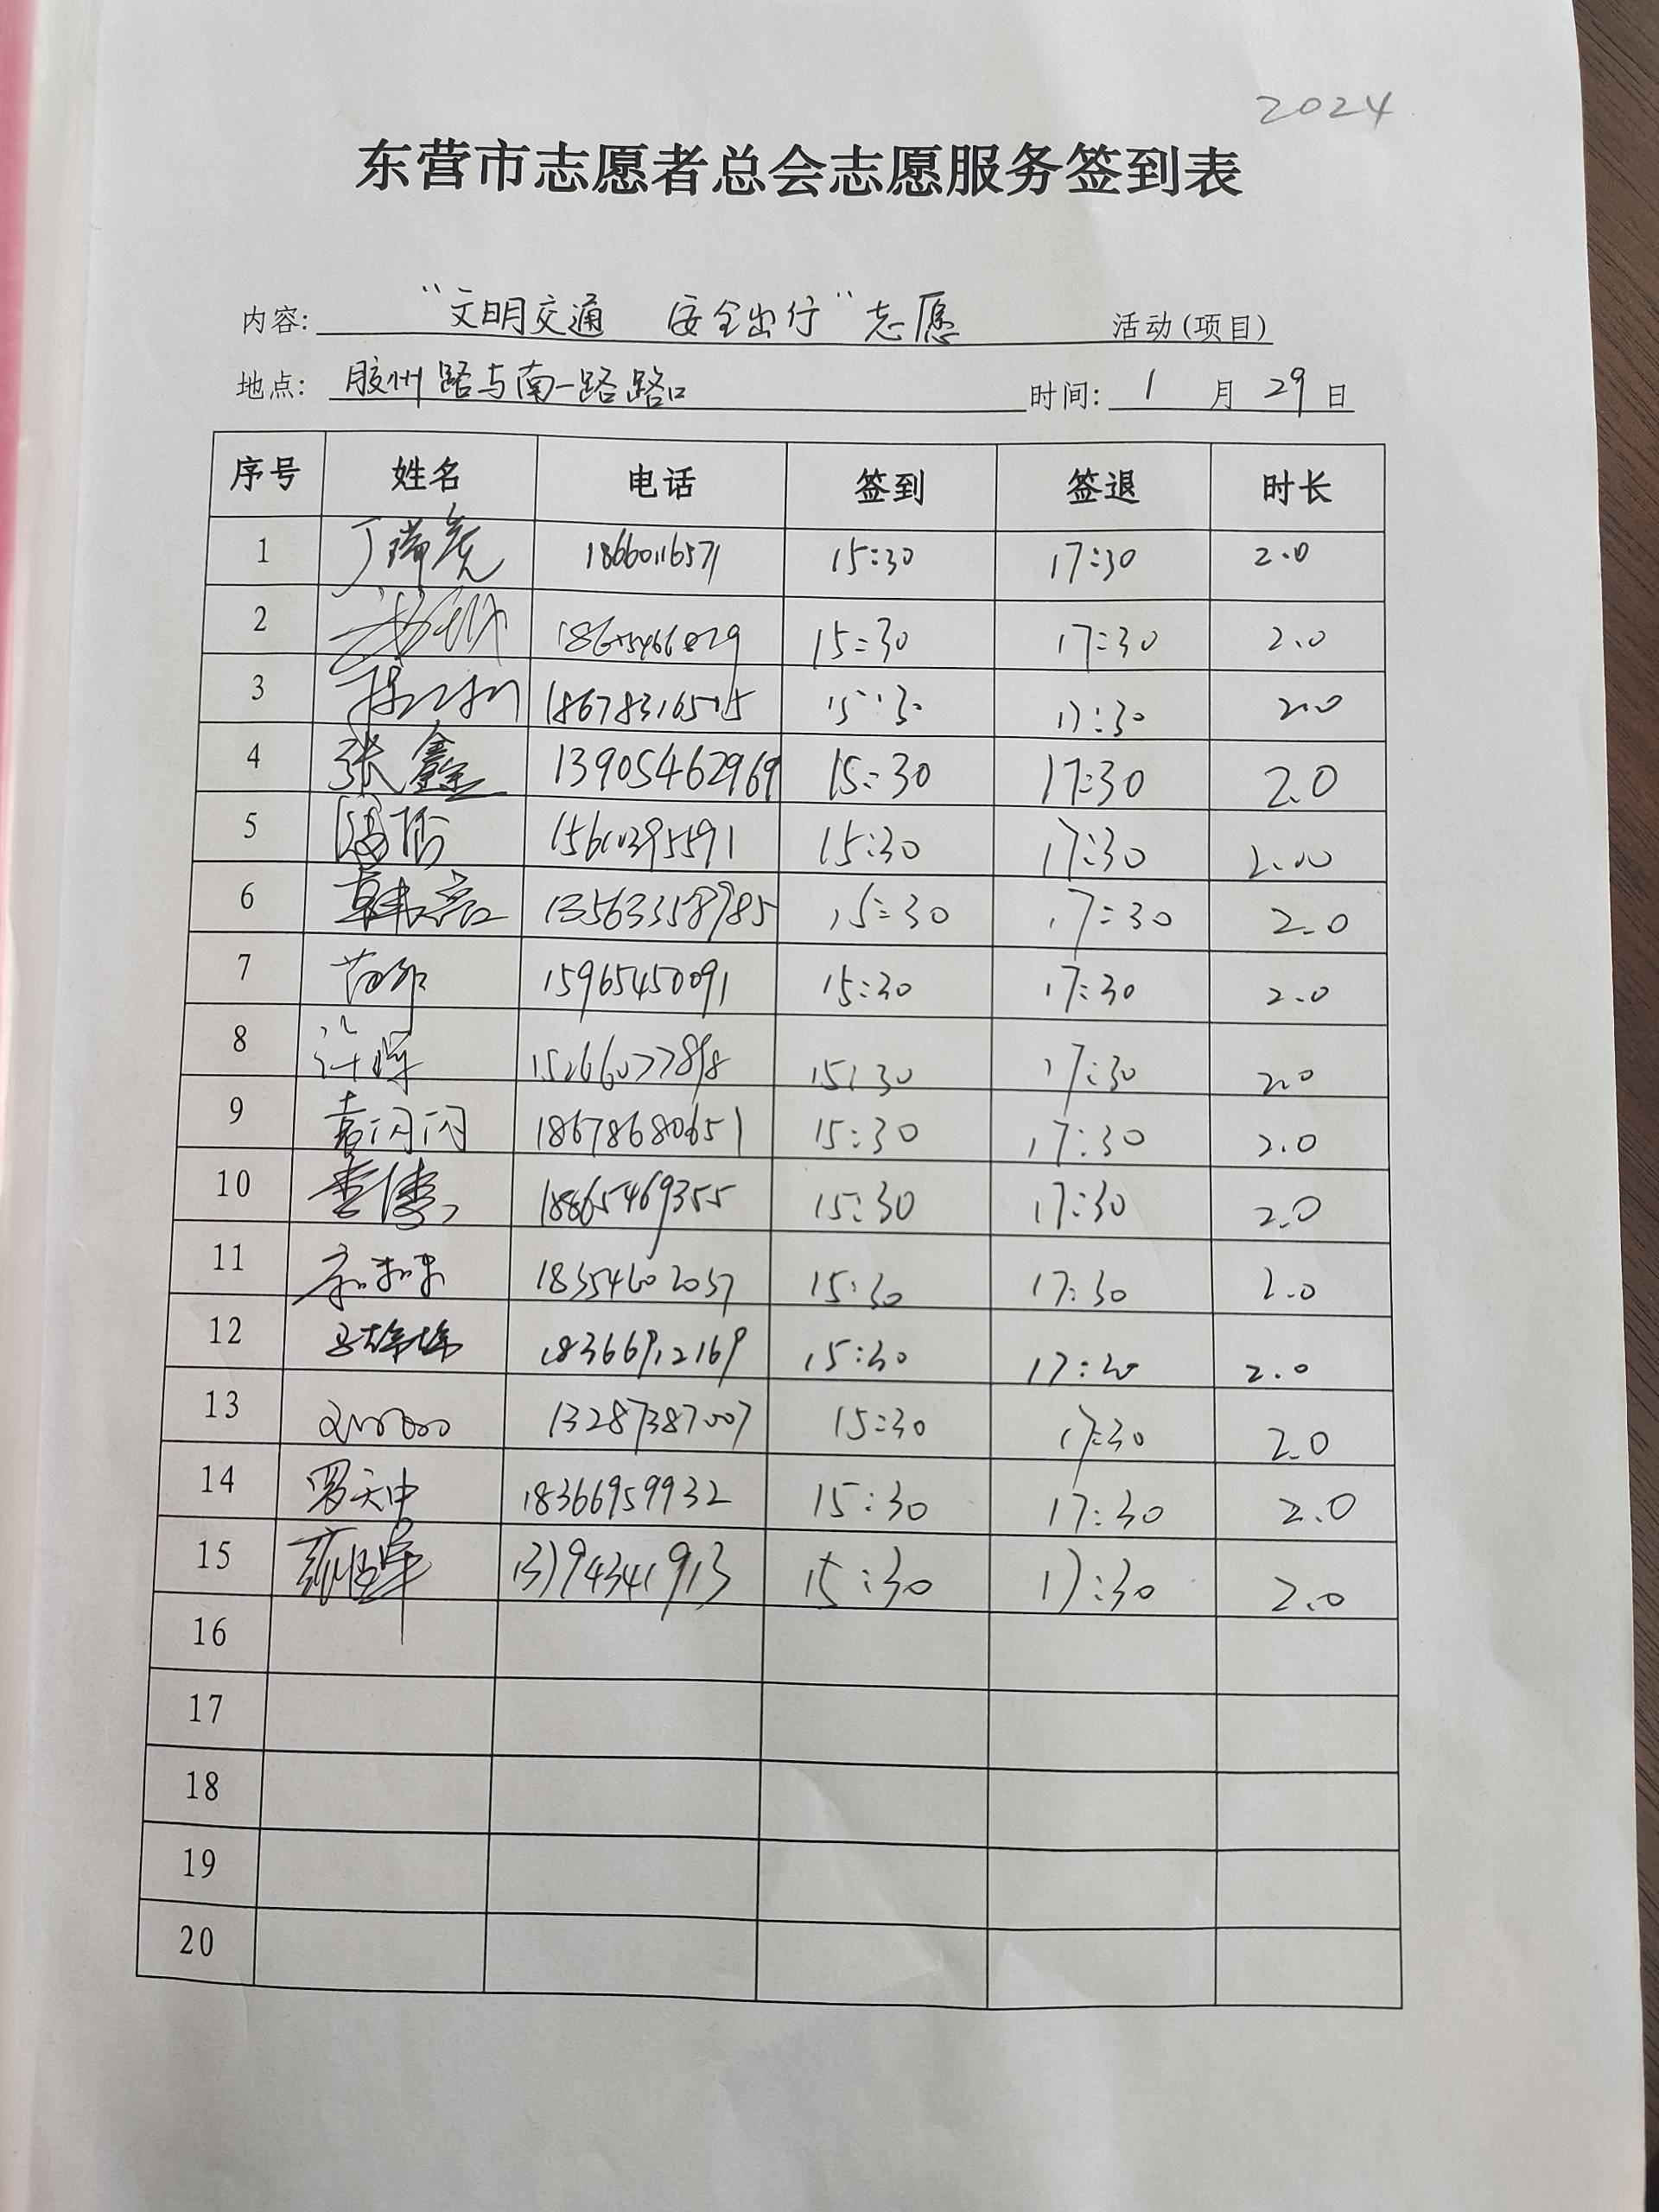 2024
东营市志愿者总会志愿服务签到表
内容: “文明交通 安全出行”志愿 活动(项目)
地点: 胶州路与南一路路口 时间: 1 月 29 日
序号 姓名 电话 签到 签退 时长
1 丁瑞虎 18660116571 15:30 17:30 2.0
2 15:30 17:30 2.0
3 18678316515 15:30 17:30 2.0
4 张鑫 13905462969 15:30 17:30 2.0
5 15610395591 15:30 17:30 2.00
6 韩亮 13563358785 15:30 17:30 2.0
7 15965450091 15:30 17:30 2.0
8 15266077898 15:30 17:30 2.0
9 袁闪闪 18678680651 15:30 17:30 2.0
10 李倩 18865469355 15:30 17:30 2.0
11 18354602037 15:30 17:30 2.0
12 18366912169 15:30 17:30 2.0
13 13287387007 15:30 17:30 2.0
14 罗天中 18366959932 15:30 17:30 2.0
15 15:30 17:30 2.0
16
17
18
19
20